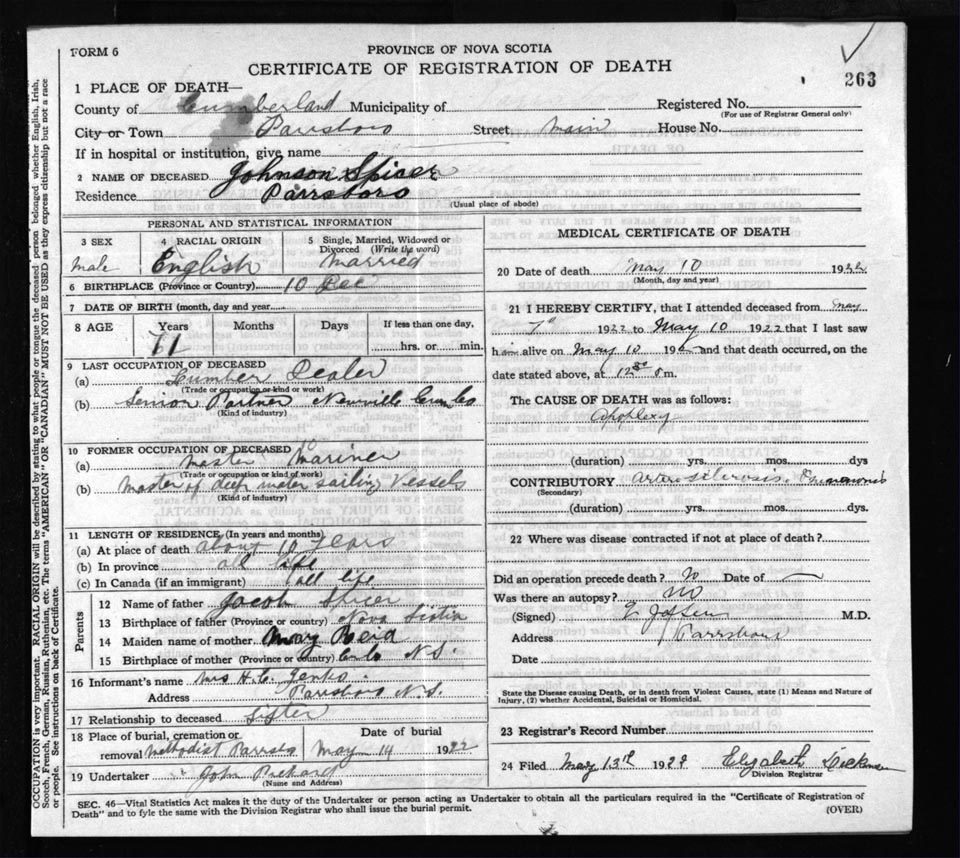 FORM 6
PROVINCE OF NOVA SCOTIA
CERTIFICATE OF REGISTRATION OF DEATH
263
1 PLACE OF DEATH—
County of Cumberland Municipality of Registered No.
(For use of Registrar General only)
City or Town Parrsboro Street main House No.
If in hospital or institution, give name
2 NAME OF DECEASED Johnson Spicer
Residence Parrsboro
(Usual place of abode)
PERSONAL AND STATISTICAL INFORMATION
3 SEX 4 RACIAL ORIGIN 5 Single, Married, Widowed or Divorced (Write the word)
male English Married
6 BIRTHPLACE (Province or Country)
7 DATE OF BIRTH (month, day and year
8 AGE Years Months Days If less than one day,
hrs. or min.
9 LAST OCCUPATION OF DECEASED
(a) Lumber Dealer
(Trade or occupation or kind or work)
(b) Senior Partner Newville
(Kind of industry)
10 FORMER OCCUPATION OF DECEASED
(a) master Mariner
(Trade or occupation or kind of work)
(b) Master of deep water sailing Vessels
(Kind of industry)
11 LENGTH OF RESIDENCE (In years and months)
(a) At place of death about years
(b) In province all life
(c) In Canada (if an immigrant) all life
Parents
12 Name of father Jacob Spicer
13 Birthplace of father (Province or country) Nova Scotia
14 Maiden name of mother Mary Reid
15 Birthplace of mother (Province or country) N.S.
16 Informant's name Mrs H.C. Jenks
Address Parrsboro N.S.
17 Relationship to deceased Sister
18 Place of burial, cremation or removal Methodist Parrsboro Date of burial May 14 1922
19 Undertaker John Pickard
(Name and Address)
MEDICAL CERTIFICATE OF DEATH
20 Date of death May 10 1922
(Month, day and year)
21 I HEREBY CERTIFY, that I attended deceased from May
7th 1922 to May 10 1922 that I last saw
him alive on May 10 192 and that death occurred, on the
date stated above, at m.
The CAUSE OF DEATH was as follows:
apoplexy
(duration) yrs. mos. dys
CONTRIBUTORY
(Secondary)
(duration) yrs. mos. dys.
22 Where was disease contracted if not at place of death?
Did an operation precede death? No Date of —
Was there an autopsy? No
(Signed) M.D.
Address Parrsboro
Date
State the Disease causing Death, or in death from Violent Causes, state (1) Means and Nature of
Injury, (2) whether Accidental, Suicidal or Homicidal.
23 Registrar's Record Number
24 Filed May 13th 1922 Elizabeth
Division Registrar
SEC. 46—Vital Statistics Act makes it the duty of the Undertaker or person acting as Undertaker to obtain all the particulars required in the "Certificate of Registration of
Death" and to fyle the same with the Division Registrar who shall issue the burial permit. (OVER)
OCCUPATION is very important. RACIAL ORIGIN will be described by stating to what people or tongue the deceased person belonged whether English, Irish,
Scotch, French, German, Russian, Ruthenian, etc. The terms "AMERICAN" OR "CANADIAN" MUST NOT BE USED as they express citizenship but not a race
or people. See instructions on back of Certificate.